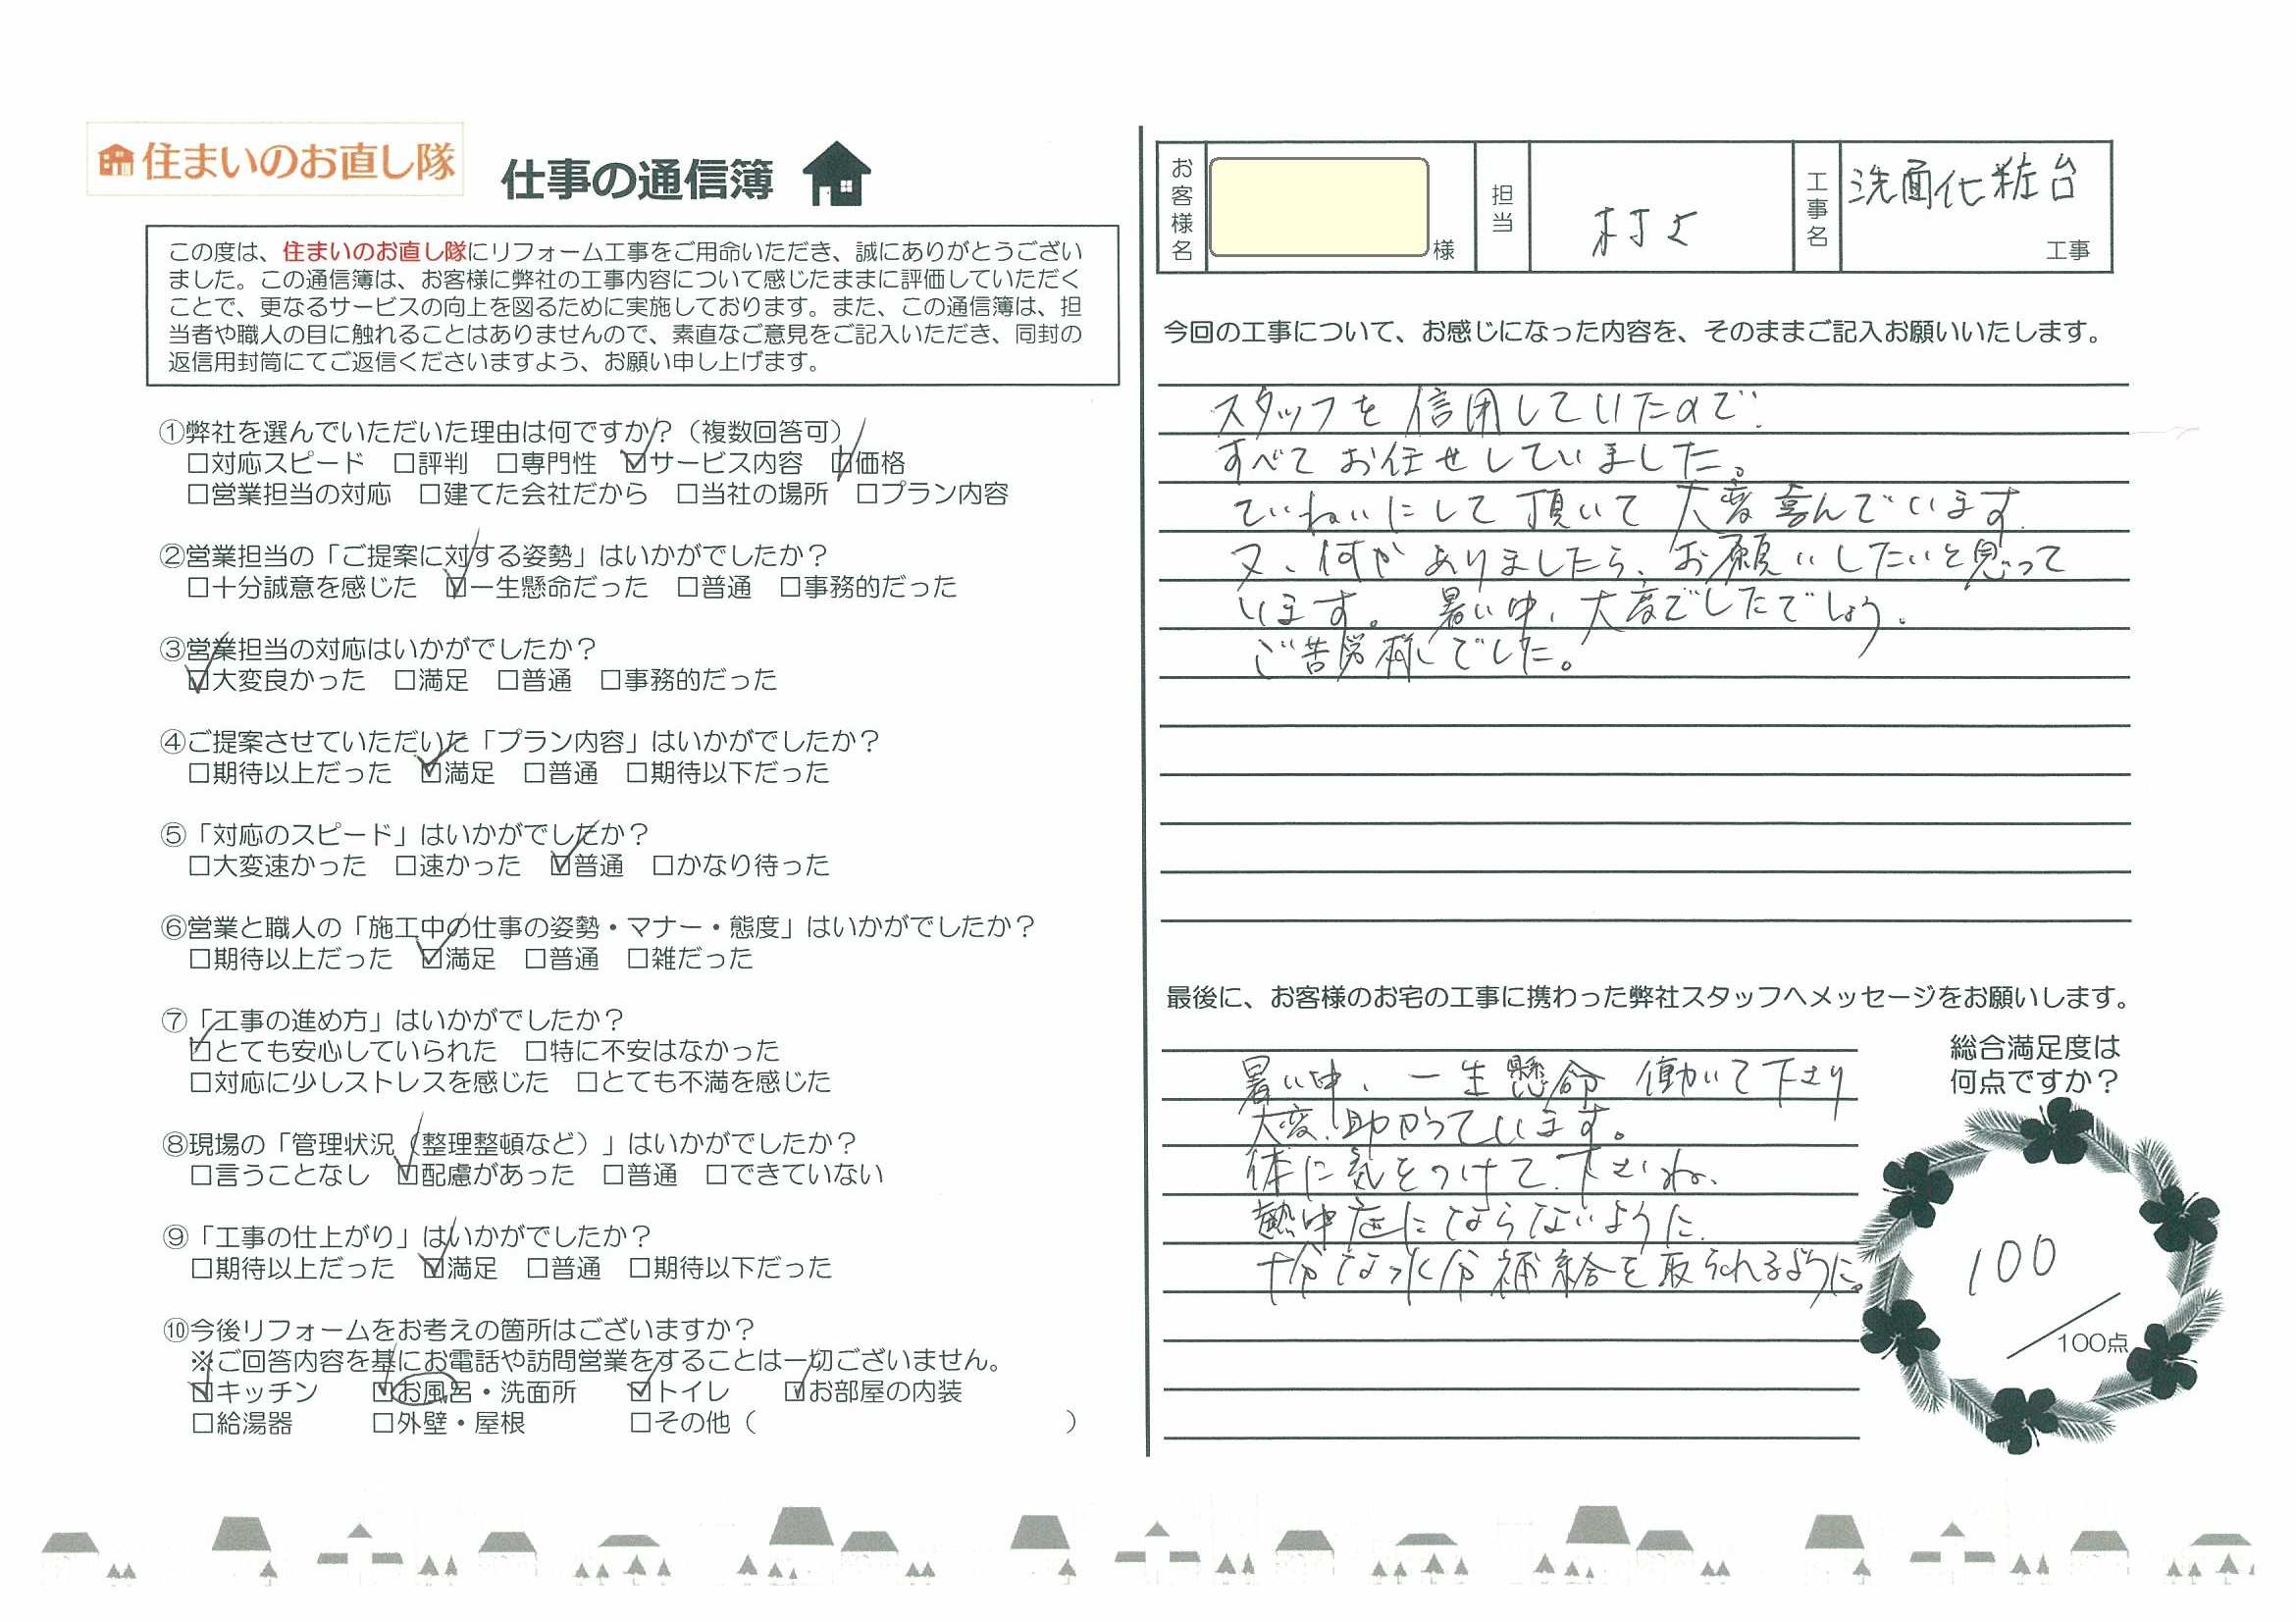 住まいのお直し隊
仕事の通信簿
この度は、住まいのお直し隊にリフォーム工事をご用命いただき、誠にありがとうござい
ました。この通信簿は、お客様に弊社の工事内容について感じたままに評価していただく
ことで、更なるサービスの向上を図るために実施しております。また、この通信簿は、担
当者や職人の目に触れることはありませんので、素直なご意見をご記入いただき、同封の
返信用封筒にてご返信くださいますよう、お願い申し上げます。
①弊社を選んでいただいた理由は何ですか？（複数回答可）
□対応スピード □評判 □専門性 ☑サービス内容 ☑価格
□営業担当の対応 □建てた会社だから □当社の場所 □プラン内容
②営業担当の「ご提案に対する姿勢」はいかがでしたか？
□十分誠意を感じた ☑一生懸命だった □普通 □事務的だった
③営業担当の対応はいかがでしたか？
☑大変良かった □満足 □普通 □事務的だった
④ご提案させていただいた「プラン内容」はいかがでしたか？
□期待以上だった ☑満足 □普通 □期待以下だった
⑤「対応のスピード」はいかがでしたか？
□大変速かった □速かった ☑普通 □かなり待った
⑥営業と職人の「施工中の仕事の姿勢・マナー・態度」はいかがでしたか？
□期待以上だった ☑満足 □普通 □雑だった
⑦「工事の進め方」はいかがでしたか？
☑とても安心していられた □特に不安はなかった
□対応に少しストレスを感じた □とても不満を感じた
⑧現場の「管理状況（整理整頓など）」はいかがでしたか？
□言うことなし ☑配慮があった □普通 □できていない
⑨「工事の仕上がり」はいかがでしたか？
□期待以上だった ☑満足 □普通 □期待以下だった
⑩今後リフォームをお考えの箇所はございますか？
※ご回答内容を基にお電話や訪問営業をすることは一切ございません。
☑キッチン ☑お風呂・洗面所 ☑トイレ ☑お部屋の内装
□給湯器 □外壁・屋根 □その他（ ）
お客様名 様 担当 村上 工事名 洗面化粧台 工事
今回の工事について、お感じになった内容を、そのままご記入お願いいたします。
スタッフを信用していたので、
すべてお任せしていました。
ていねいにして頂いて大変喜んでいます。
又、何かありましたら、お願いしたいと思って
います。暑い中、大変でしたでしょう。
ご苦労様でした。
最後に、お客様のお宅の工事に携わった弊社スタッフへメッセージをお願いします。
暑い中、一生懸命働いて下さり
大変、助かっています。
体に気をつけて下さいね、
熱中症にならないように
十分な水分補給を取られるように。
総合満足度は
何点ですか？
100
/100点